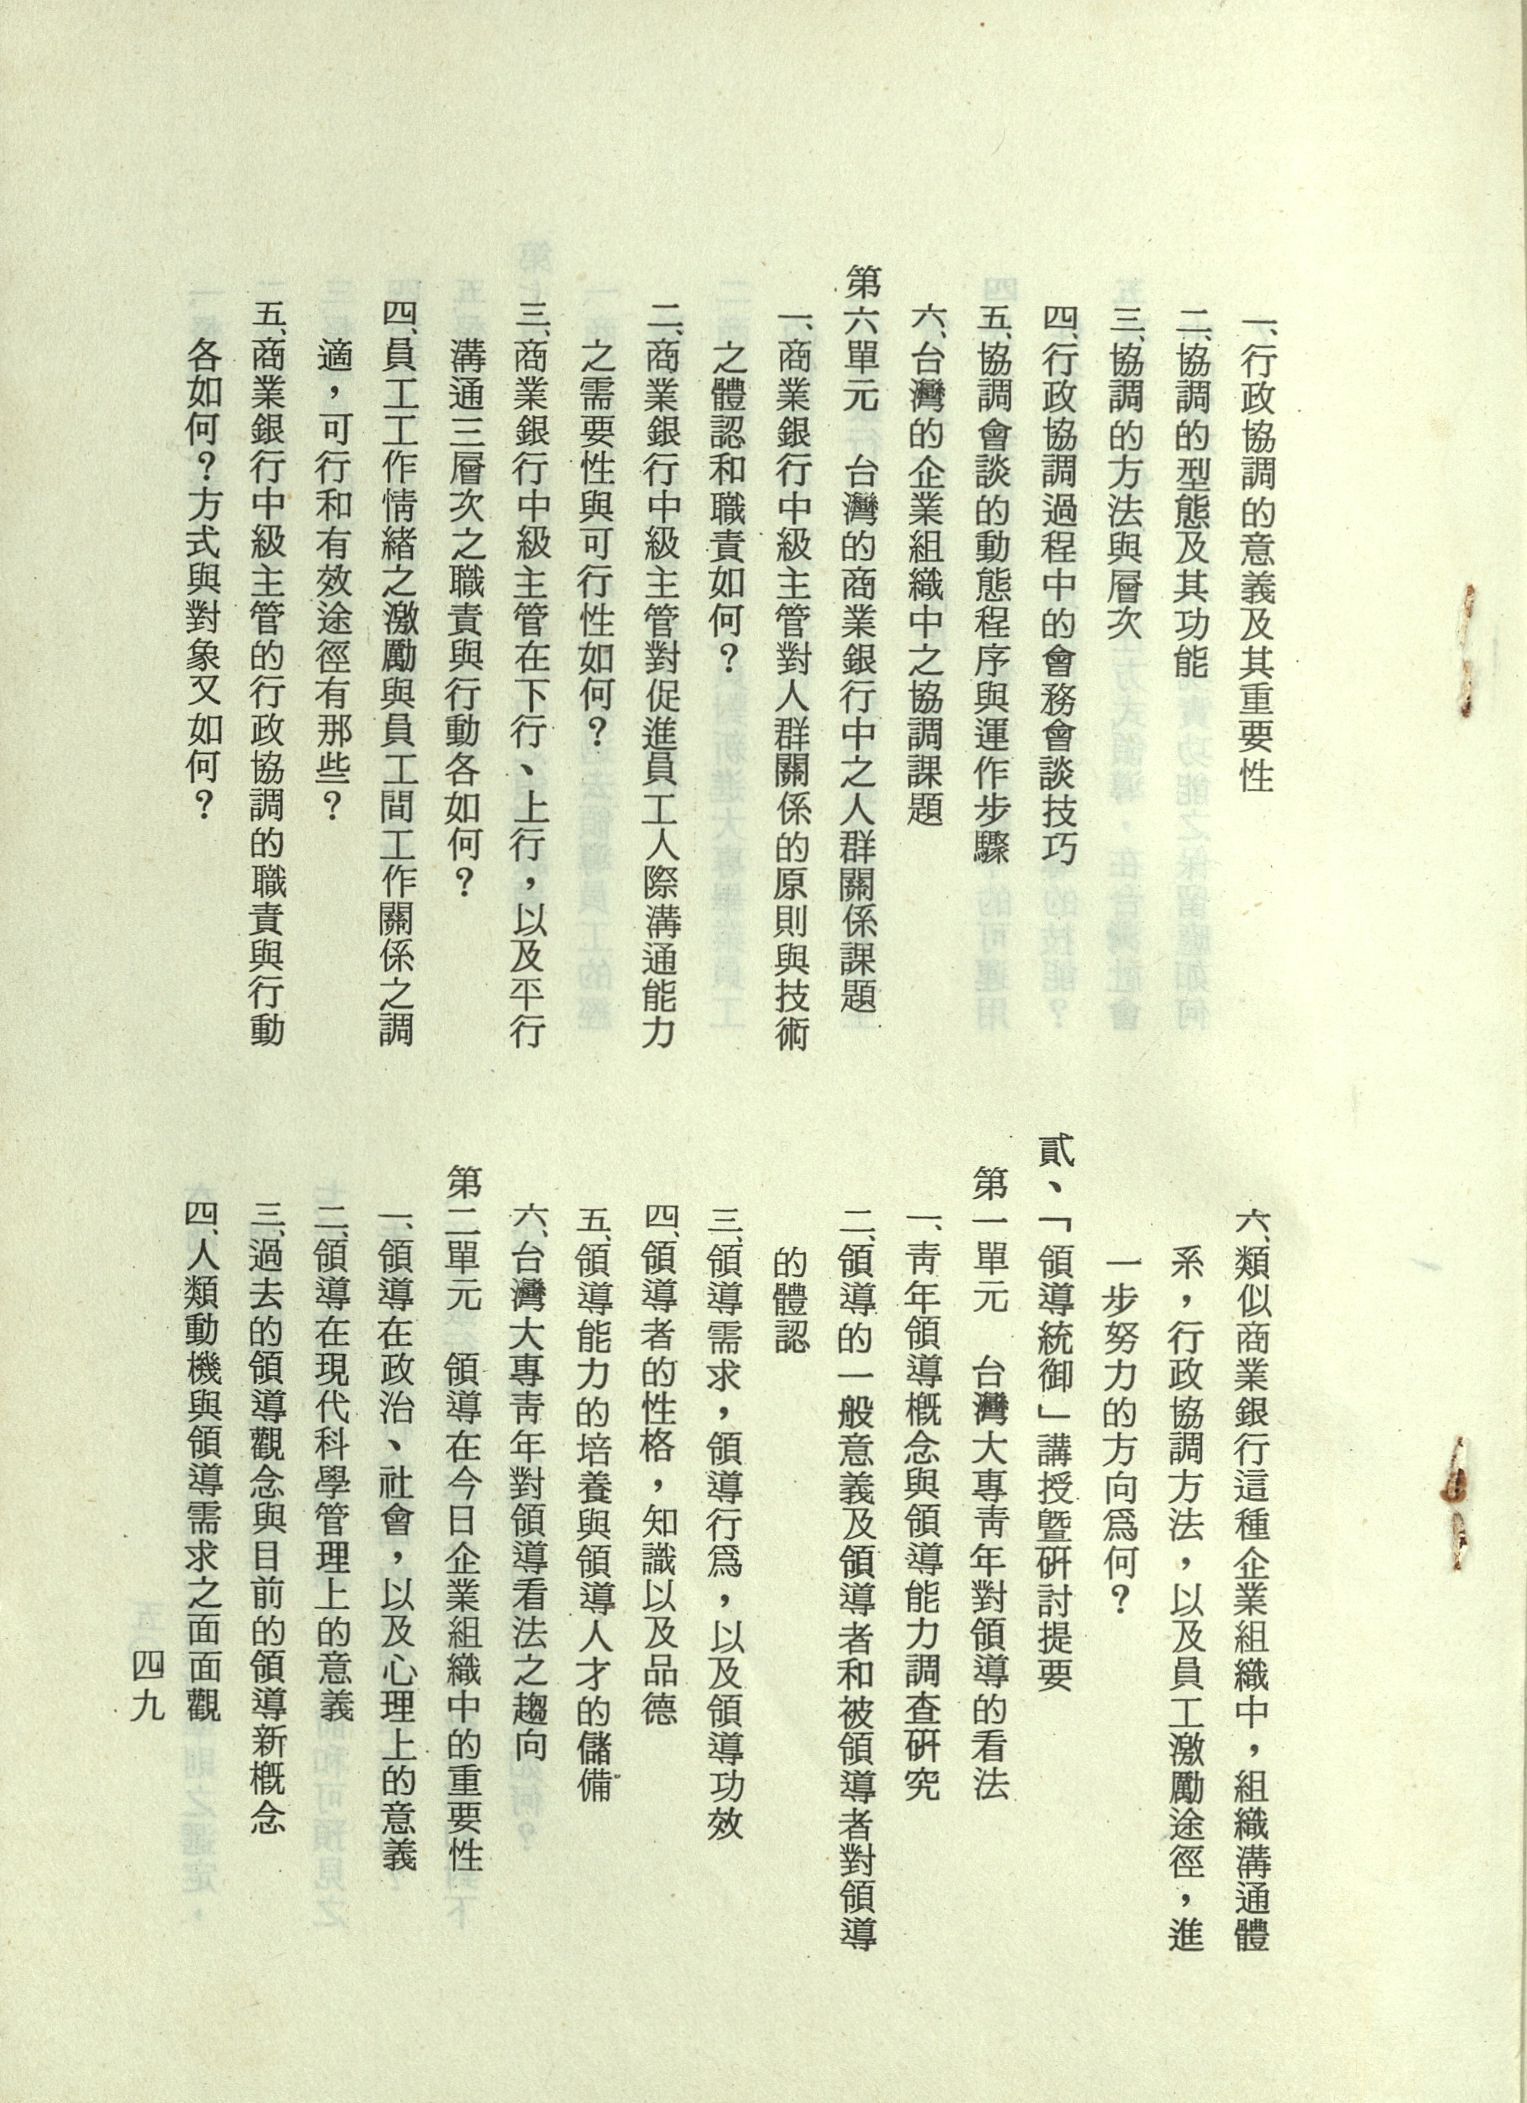 一、行政協調的意義及其重要性
二、協調的型態及其功能
三、協調的方法與層次
四、行政協調過程中的會務會談技巧
五、協調會談的動態程序與運作步驟
六、台灣的企業組織中之協調課題
第六單元　台灣的商業銀行中之人群關係課題
一、商業銀行中級主管對人群關係的原則與技術
之體認和職責如何？
二、商業銀行中級主管對促進員工人際溝通能力
之需要性與可行性如何？
三、商業銀行中級主管在下行、上行，以及平行
溝通三層次之職責與行動各如何？
四、員工工作情緒之激勵與員工間工作關係之調
適，可行和有效途徑有那些？
五、商業銀行中級主管的行政協調的職責與行動
各如何？方式與對象又如何？
六、類似商業銀行這種企業組織中，組織溝通體
系，行政協調方法，以及員工激勵途徑，進
一步努力的方向爲何？
貳、「領導統御」講授暨研討提要
第一單元　台灣大專靑年對領導的看法
一、靑年領導概念與領導能力調查研究
二、領導的一般意義及領導者和被領導者對領導
的體認
三、領導需求，領導行爲，以及領導功效
四、領導者的性格，知識以及品德
五、領導能力的培養與領導人才的儲備
六、台灣大專靑年對領導看法之趨向
第二單元　領導在今日企業組織中的重要性
一、領導在政治、社會，以及心理上的意義
二、領導在現代科學管理上的意義
三、過去的領導觀念與目前的領導新概念
四、人類動機與領導需求之面面觀
四九